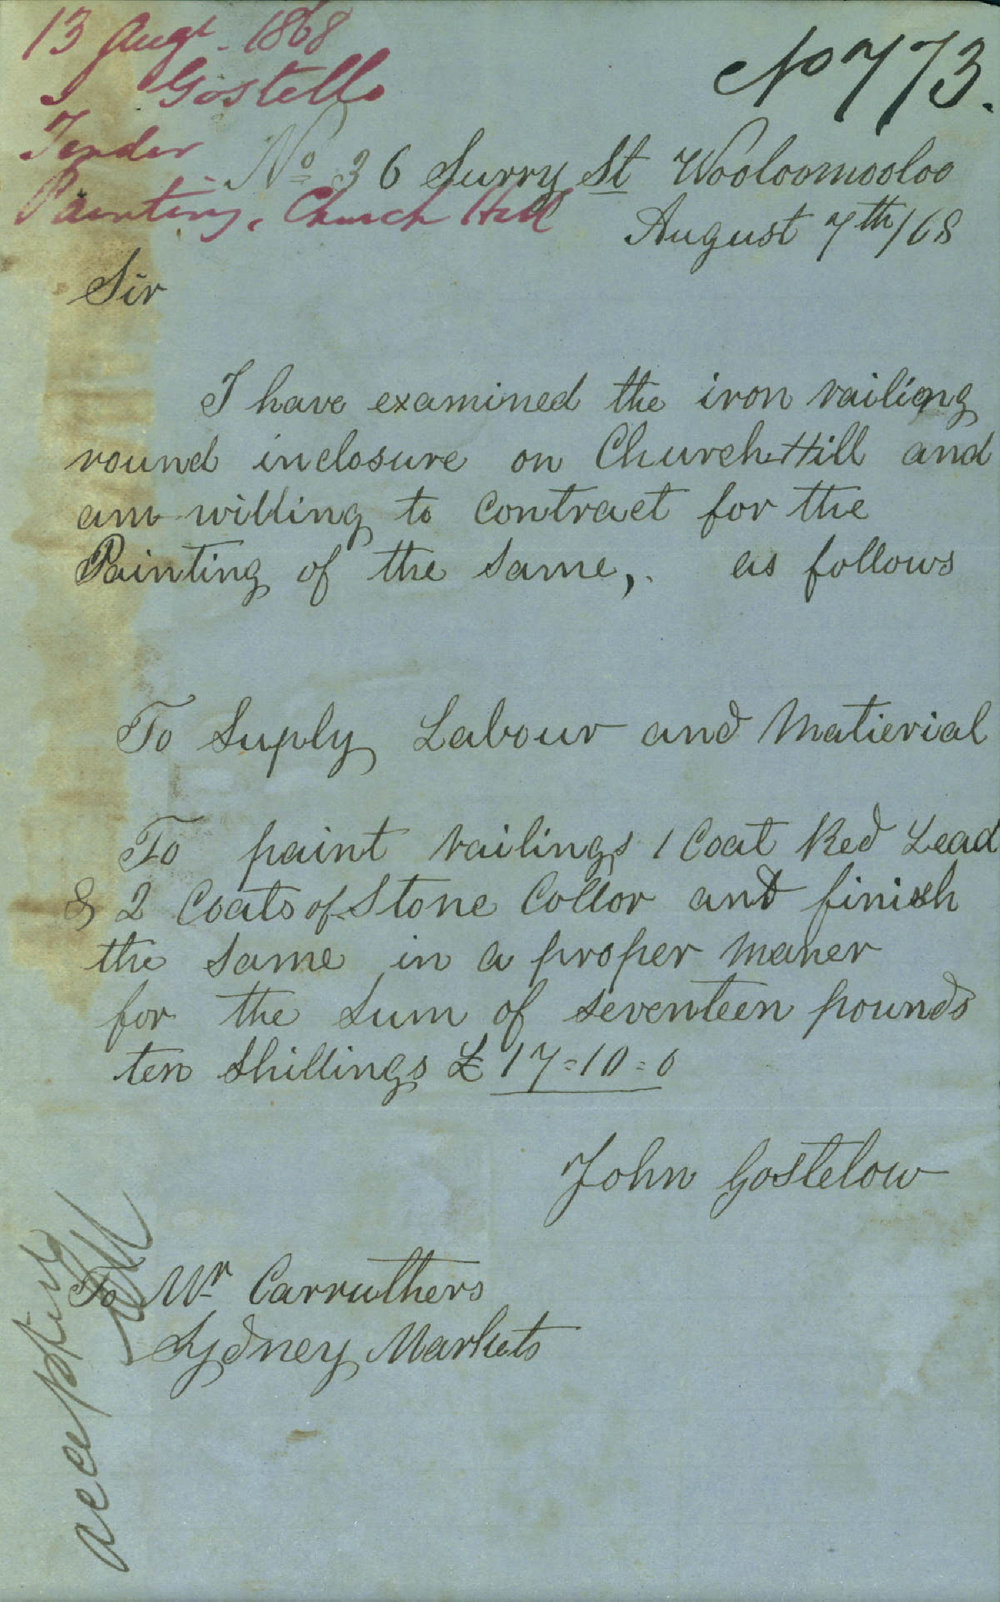 13 Augt. 1868
Gostello
Tender
Painting, Church Hill
No 773.
No 36 Surry St Wooloomooloo
August 7th/68
Sir
I have examined the iron railing
round inclosure on Church Hill and
am willing to Contract for the
Painting of the same,. as follows
To Suply Labour and Matierial
To paint railings 1 Coat Red Lead
& 2 Coats of Stone Collor and finish
the same in a proper maner
for the sum of seventeen pounds
ten shillings £17=10=0
John Gostelow
To Mr Carruthers
Sydney Markets